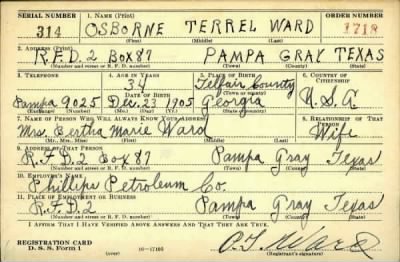 SERIAL NUMBER 1. NAME (Print) ORDER NUMBER
314 OSBORNE TERREL WARD 1718
(First) (Middle) (Last)
2. ADDRESS (Print)
R.F.D. 2 BOX 87 PAMPA GRAY TEXAS
(Number and street or R. F. D. number) (Town) (County) (State)
3. TELEPHONE 4. AGE IN YEARS 5. PLACE OF BIRTH 6. COUNTRY OF CITIZENSHIP
34 Telfair County
DATE OF BIRTH (Town or county)
Pampa 9025 Dec. 23 1905 Georgia U.S.A.
(Exchange) (Number) (Mo.) (Day) (Yr.) (State or country)
7. NAME OF PERSON WHO WILL ALWAYS KNOW YOUR ADDRESS 8. RELATIONSHIP OF THAT PERSON
Mrs. Bertha Marie Ward Wife
(Mr., Mrs., Miss) (First) (Middle) (Last)
9. ADDRESS OF THAT PERSON
R.F.D. 2 Box 87 Pampa Gray Texas
(Number and street or R. F. D. number) (Town) (County) (State)
10. EMPLOYER'S NAME
Phillips Petroleum Co.
11. PLACE OF EMPLOYMENT OR BUSINESS
R.F.D. 2 Pampa Gray Texas
(Number and street or R. F. D. number) (Town) (County) (State)
I AFFIRM THAT I HAVE VERIFIED ABOVE ANSWERS AND THAT THEY ARE TRUE.
REGISTRATION CARD O.T. Ward
D. S. S. Form 1 (over) 16-17105 (Registrant's signature)